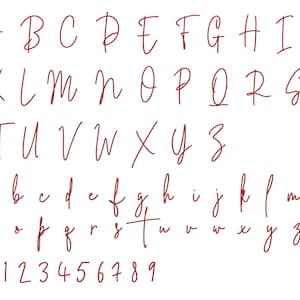 B C D E F G H I
L M N O P Q R S
T U V W X Y Z
b c d e f g h i j k l m
o p q r s t u v w x y z
1 2 3 4 5 6 7 8 9